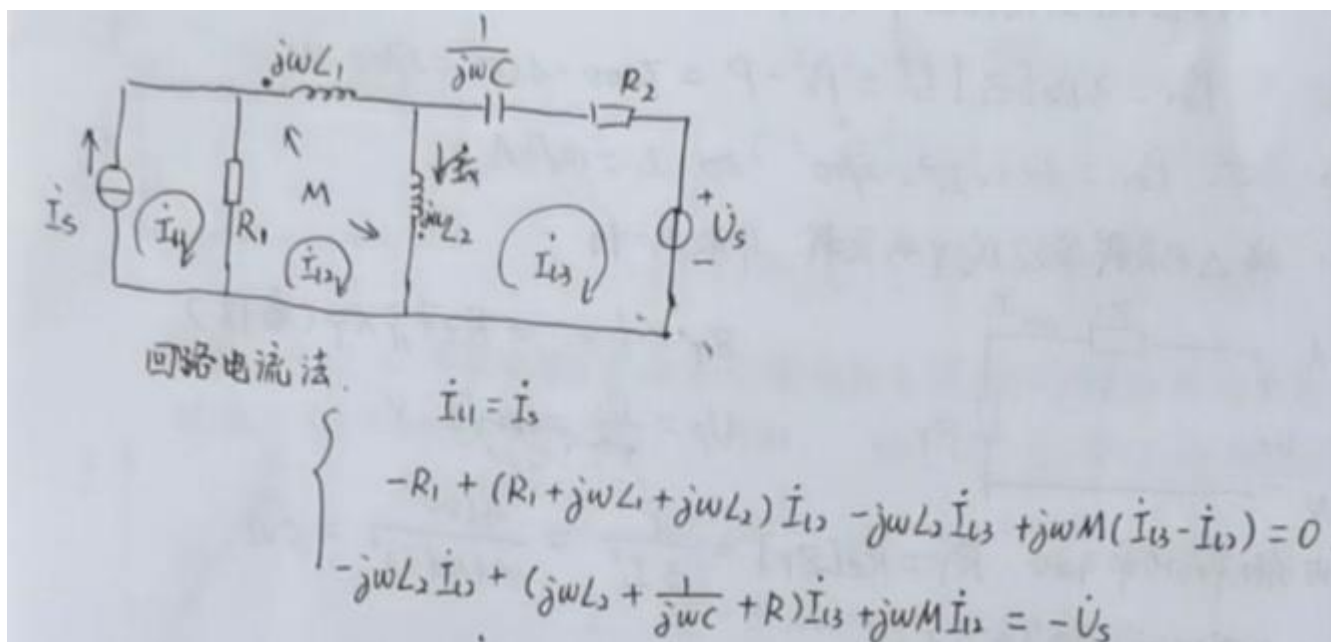 jωL₁
1/(jωC)
R₂
M
İs
İl1
R₁
İl2
jωL₂
İl3
+
U̇s
-
回路电流法.
İl1 = İs
-R₁ + (R₁ + jωL₁ + jωL₂) İl2 - jωL₂ İl3 + jωM (İl3 - İl2) = 0
-jωL₂ İl2 + (jωL₂ + 1/(jωC) + R) İl3 + jωM İl2 = -U̇s